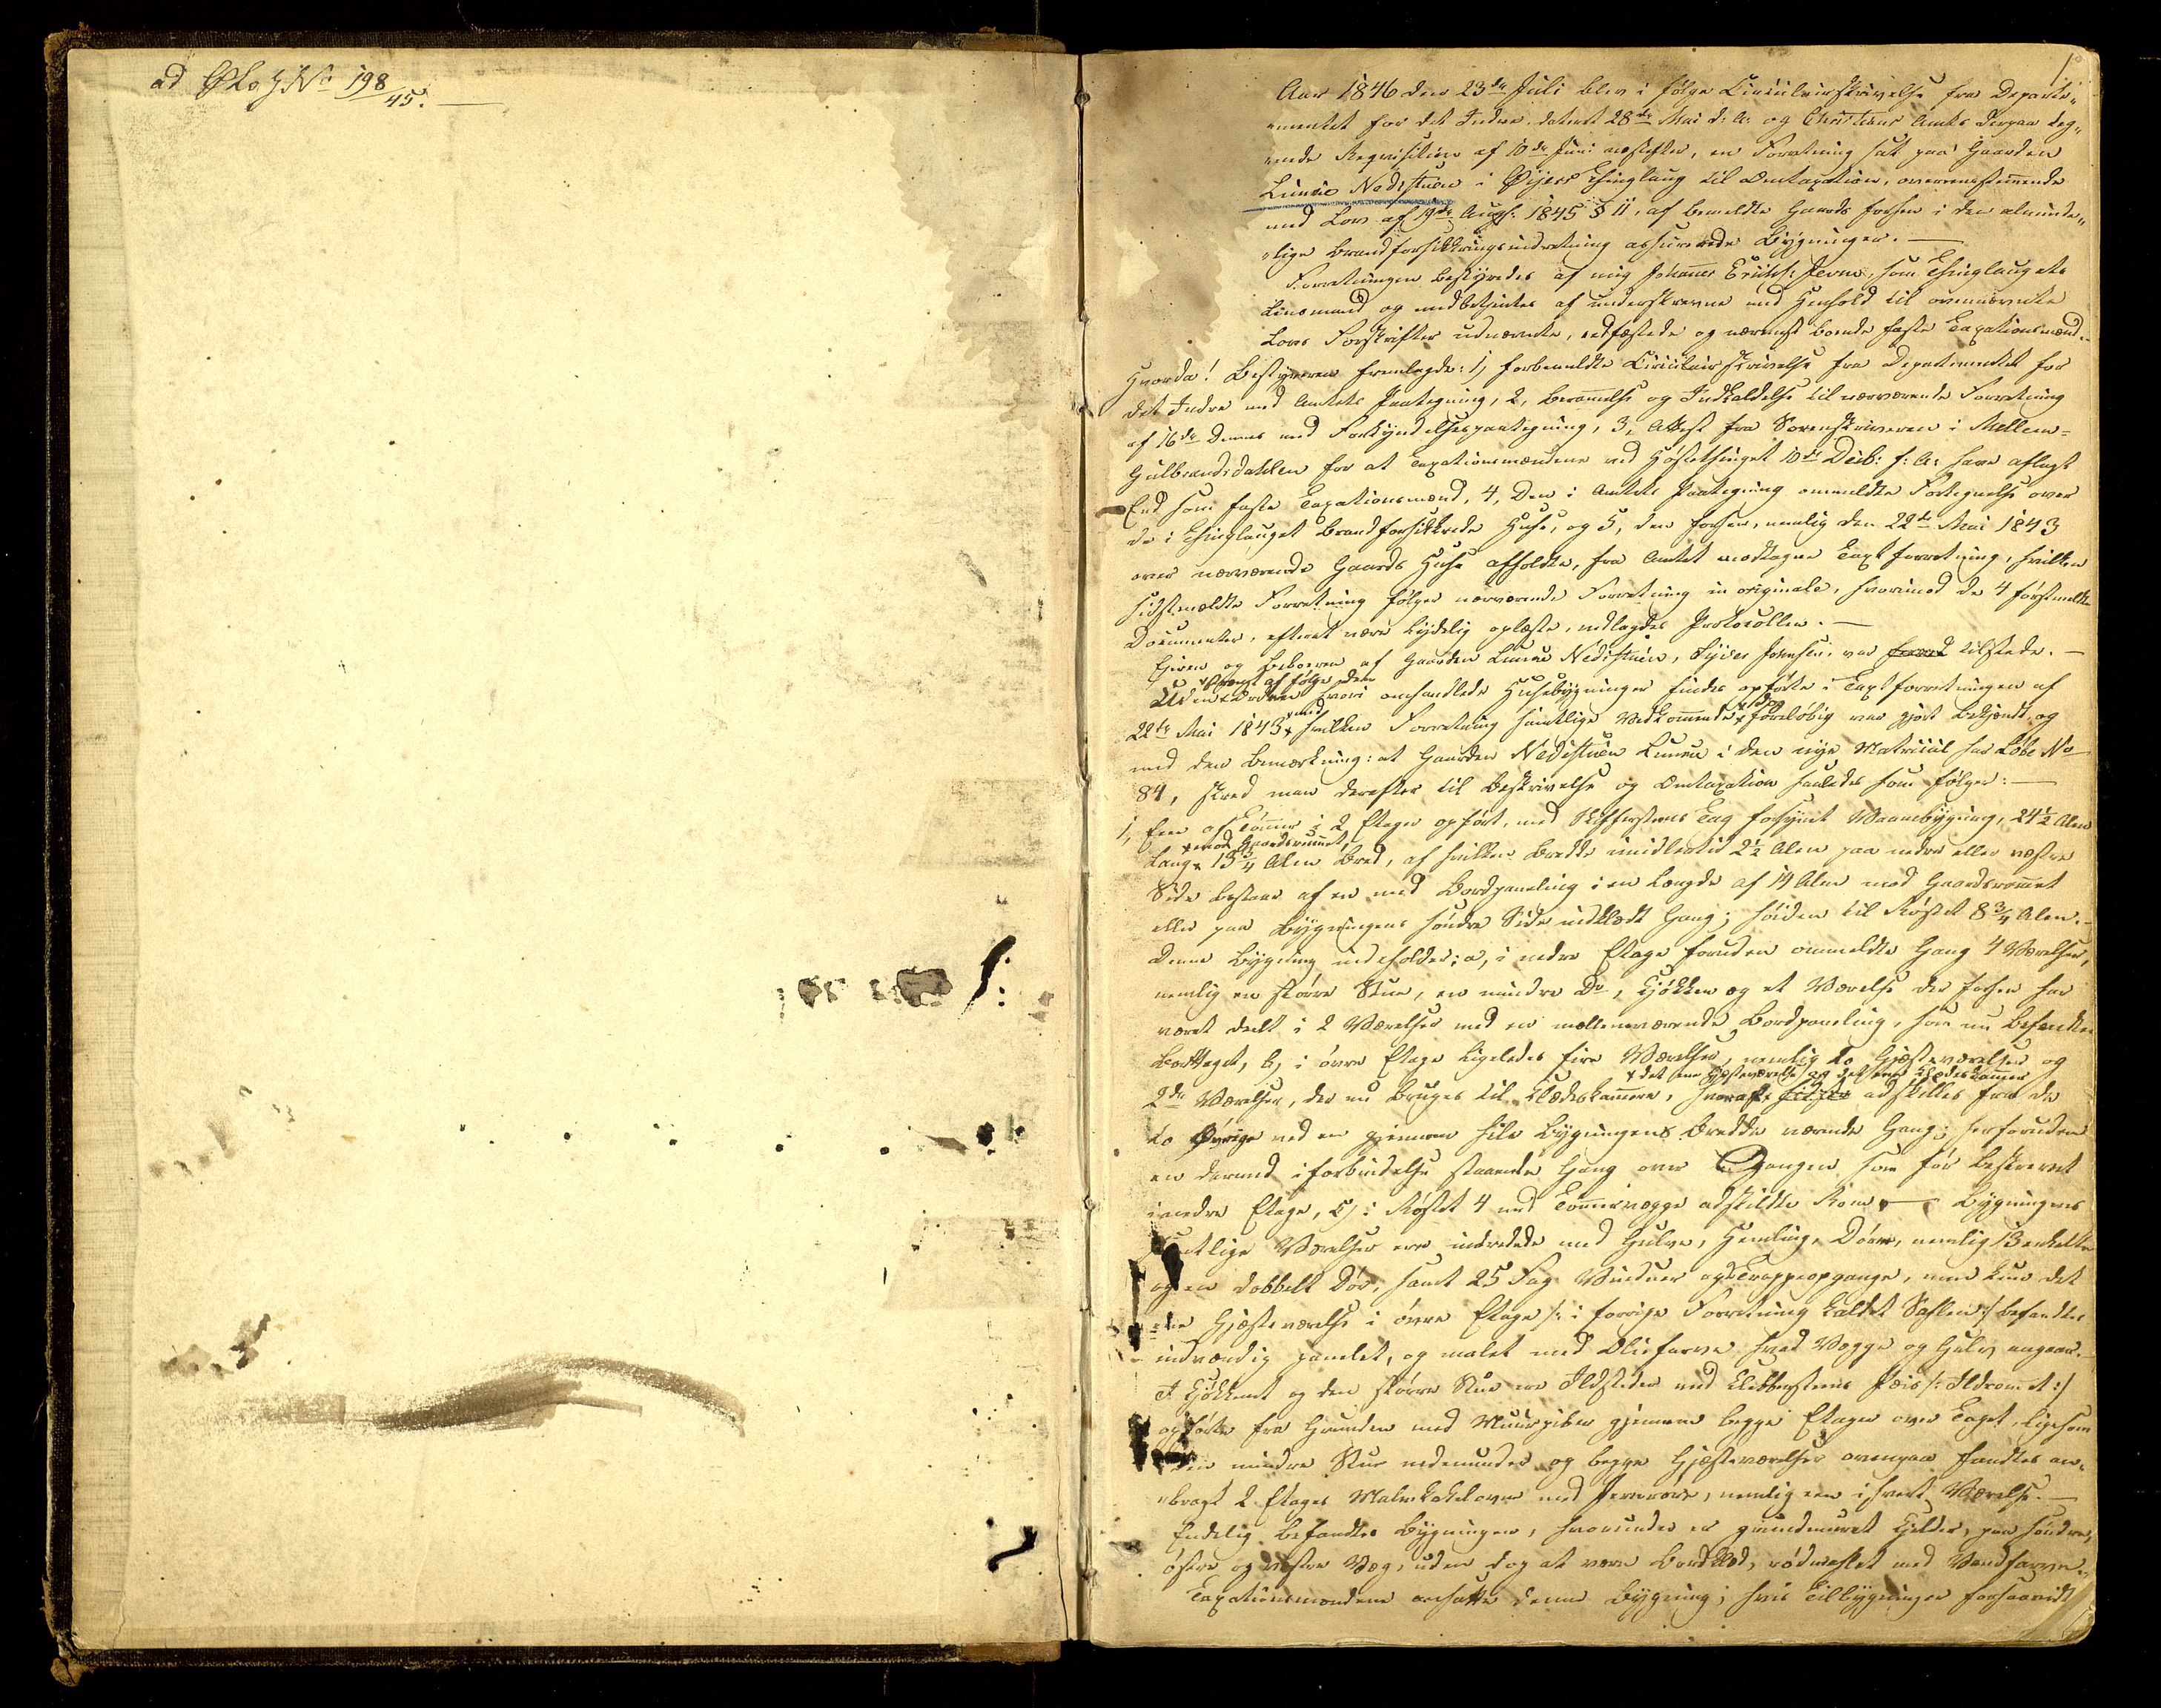 ad J.No 198/45.
1
Aar 1846 den 23de Juli blev i følge Circulairskrivelse fra Departe„
„mentet for det Indre, dateret 28de Mai d: A: og Christians Amts derpaa teg„
„nede Reqvisition af 10de Juni næstefter, en Forretning sat paa Gaarden
Lunde Nedistuen i Øijers Thinglaug til Omtaxation, overensstemmende
med Lov af 19de Augs: 1845 § 11, af bemeldte Gaards forhen i den alminde„
„lige Brandforsikkringsindretning assurerede Bygninger. —
Forretningen bestyredes af mig Johannes Eriks: Jevne, som Thinglaugets
Lensmand og medbetjentes af underskrevne med Henhold til ovennævnte
Lovs Forskrifter udnævnte, eedfæstede og nærmest boende faste Taxationsmænd.
Hvorda! Bestyreren fremlagde: 1, forbemeldte Circulairskrivelse fra Departementet for
det Indre med Amtets Paategning, 2, Berammelse og Indkaldelse til nærværende Forretning
af 16de dennes med Forkyndelsespaategning, 3, Attest fra Sorenskriveren i Mellem-
Gulbrandsdahlen for at Taxationsmændene ved Høstethinget 10de Decb: f: A: have aflagt
Eed som faste Taxationsmænd, 4, den i Amtets Paategning ommeldte Fortegnelse over
de i Thinglauget Brandforsikkrede Huse, og 5, den forhen, nemlig den 22de Mai 1843
over nærværende Gaards Huse afholdte, fra Amtet modtagne Taxtforretning, hvilken
sidstmeldte Forretning følger nærværende Forretning in originale, hvorimod de 4 førstmeldte
Documenter, efterat være lydelig oplæste, vedlagdes Protocollen. —
Eieren og Beboeren af Gaarden Lunde Nedistuen, Syver Johnsen, var tilstede. —
Uden af følge den
hvori omhandlede Husebygninger findes opførte i Taxtforretningen af
22de Mai 1843, med hvilken Forretning samtlige Vedkommende foreløbig var gjort bekjendt, og
med den Bemærkning: at Gaarden Nedistuen Lunde i den nye Matricul har Løbe No
84, skred man derefter til Beskrivelse og Omtaxation saaledes som følger: —
1, Een af Tømmer i 2 Etager opført, med Skifferstens Tag forsynet Vaanebygning, 24½ Alen
lang mod Gaardsrummet, 13¾ Alen bred, af hvilken Bredde imidlertid 2½ Alen paa nedre eller vestre
Side bestaar af en med Bordpaneling i en Længde af 19 Alen mod Gaardsrommet
eller paa Bygningens søndre Side indklædt Gang; høiden til Røstet 8¾ Alen.
Denne Bygning indeholder; a, i nedre Etage foruden ommeldte Gang 4 Værelser,
nemlig en større Stue, en mindre Do, Kjøkken og et Værelse der forhen har
været deelt i 2 Værelser med en mellemværende Bordpaneling, som nu befandtes
borttaget, b, i øvre Etage ligeledes fire Værelser, nemlig to Gjæsteværelser og
2de Værelser, der nu bruges til Klædeskammere, hvoraf det ene Gjæsteværelse og det ene Klædeskammer adskilles fra de
to Øvrige ved en gjennem hele Bygningens Bredde værende Gang; herforuden
en dermed i forbindelse staaende Gang over Gangen som før beskrevet
i nedre Etage, c, i Røstet 4 med Tømmervægge adskildte Rom. — Bygningens
samtlige Værelser ere indredede med Gulve, Hemling, Døre, nemlig 13 enkelte
og en dobbelt Dør, samt 25 Fag Vinduer og Trappeopgange, men kun det
ene Gjæsteværelse i øvre Etage /: i forrige Forretning kaldet Sahlen:/ befandtes
indvendig panelet, og malet med Oliefarve hvad Vægge og Gulv angaar.
I Kjøkkenet og den større Stue ere Ildsteder med Klebberstens Peis /: Ildrommet :/
opførte fra Grunden med Muurpiber gjennem begge Etager over Taget, ligesom
den mindre Stue nedenunder og begge Gjæsteværelser ovenpaa fandtes an„
„bragt 2 Etages Malmkakelovne med Jernrøre, nemlig een i hvert Værelse. —
Endelig befandtes Bygningen, hvorunder er grundmuret Kjelder, paa søndre,
østre og vestre Væg, uden dog at være Bordklæd, rødmalet med Vandfarve.
Taxationsmændene ansatte denne Bygning; hvis Tilbygninger forsaavidt